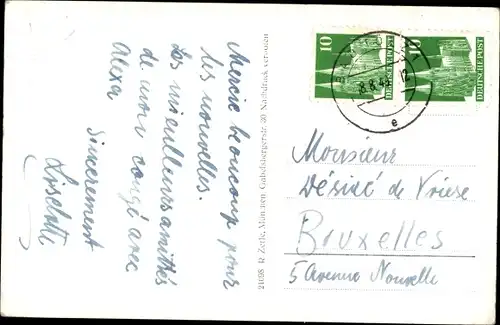 Mercie beaucoup pour
les nouvelles.
Les meilleurs amitiés
de mon congé avec
Alexa
Sincerement
Liselotte
21098 R. Zerle, München Gabelsbergerstr. Nachdruck verboten
10
DEUTSCHE POST
10
DEUTSCHE POST
8.8.4
12
e
Monsieur
Désiré de Vriese
Bruxelles
5 Avenue Nouvelle